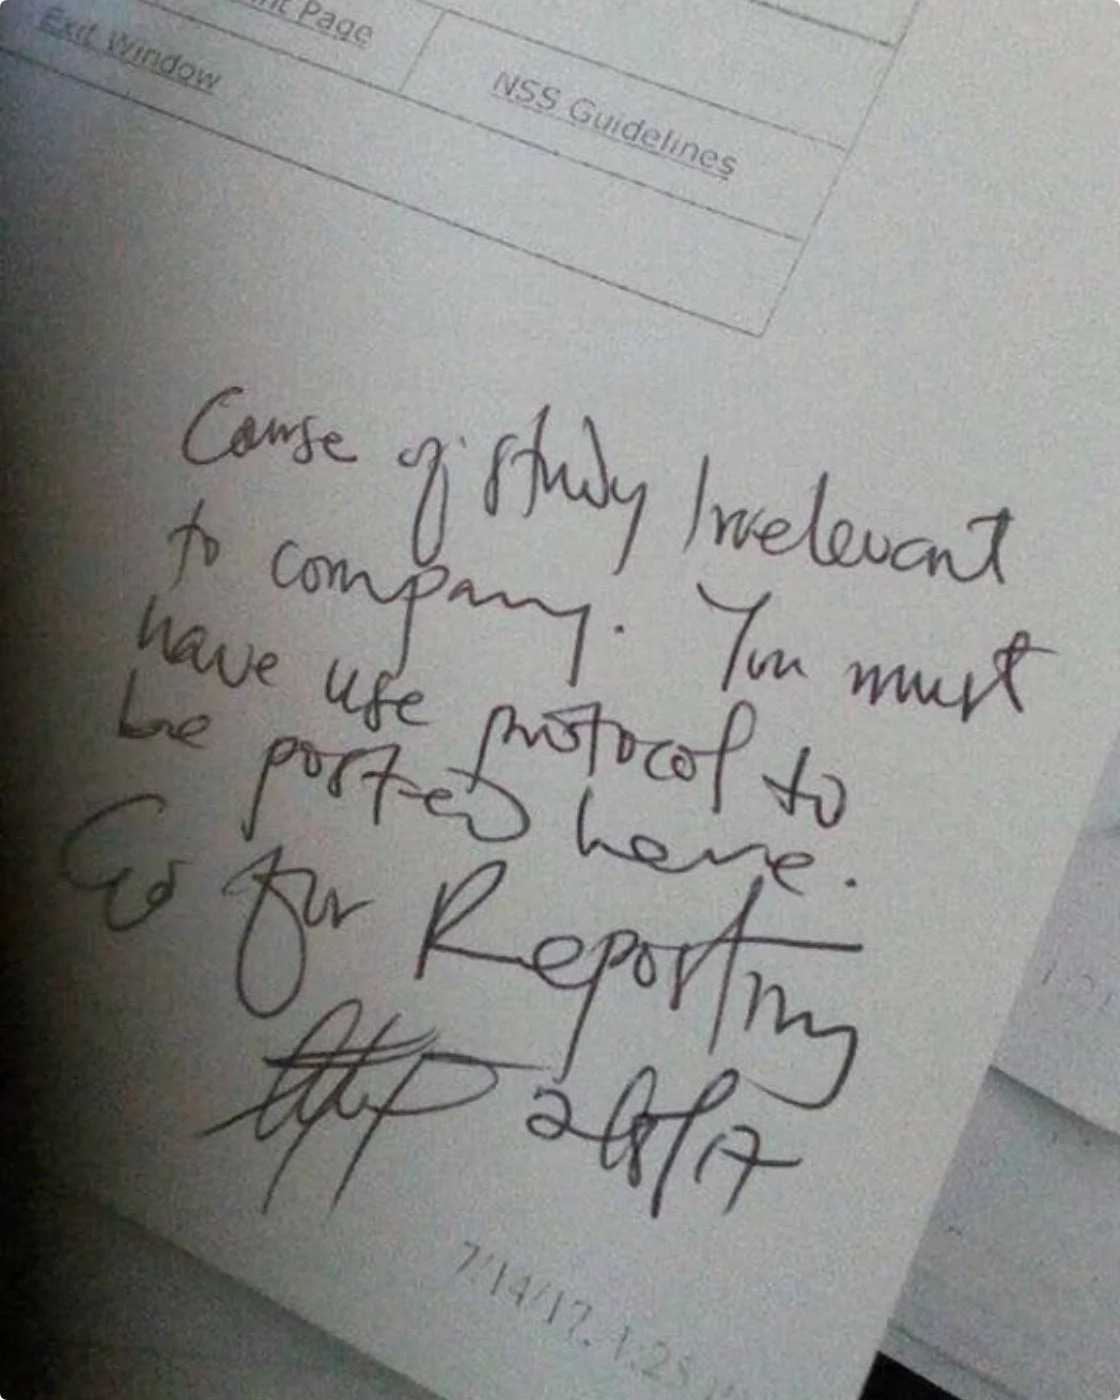 nt Page
Exit Window
NSS Guidelines
Course of study Irrelevant
to company. You must
have use protocol to
be posted here.
Go for Reporting
2/8/17
7/14/17, 1:25